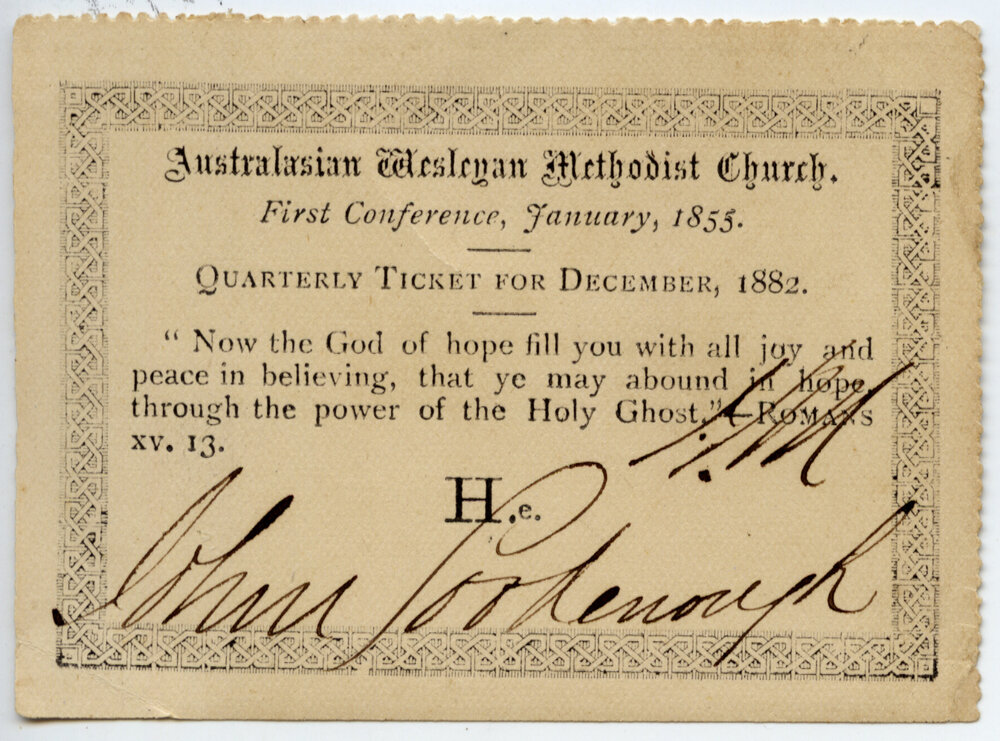 Australasian Wesleyan Methodist Church.
First Conference, January, 1855.
QUARTERLY TICKET FOR DECEMBER, 1882.
" Now the God of hope fill you with all joy and
peace in believing, that ye may abound in hope,
through the power of the Holy Ghost."—ROMANS
XV. 13.
H.e.
John Goodenough